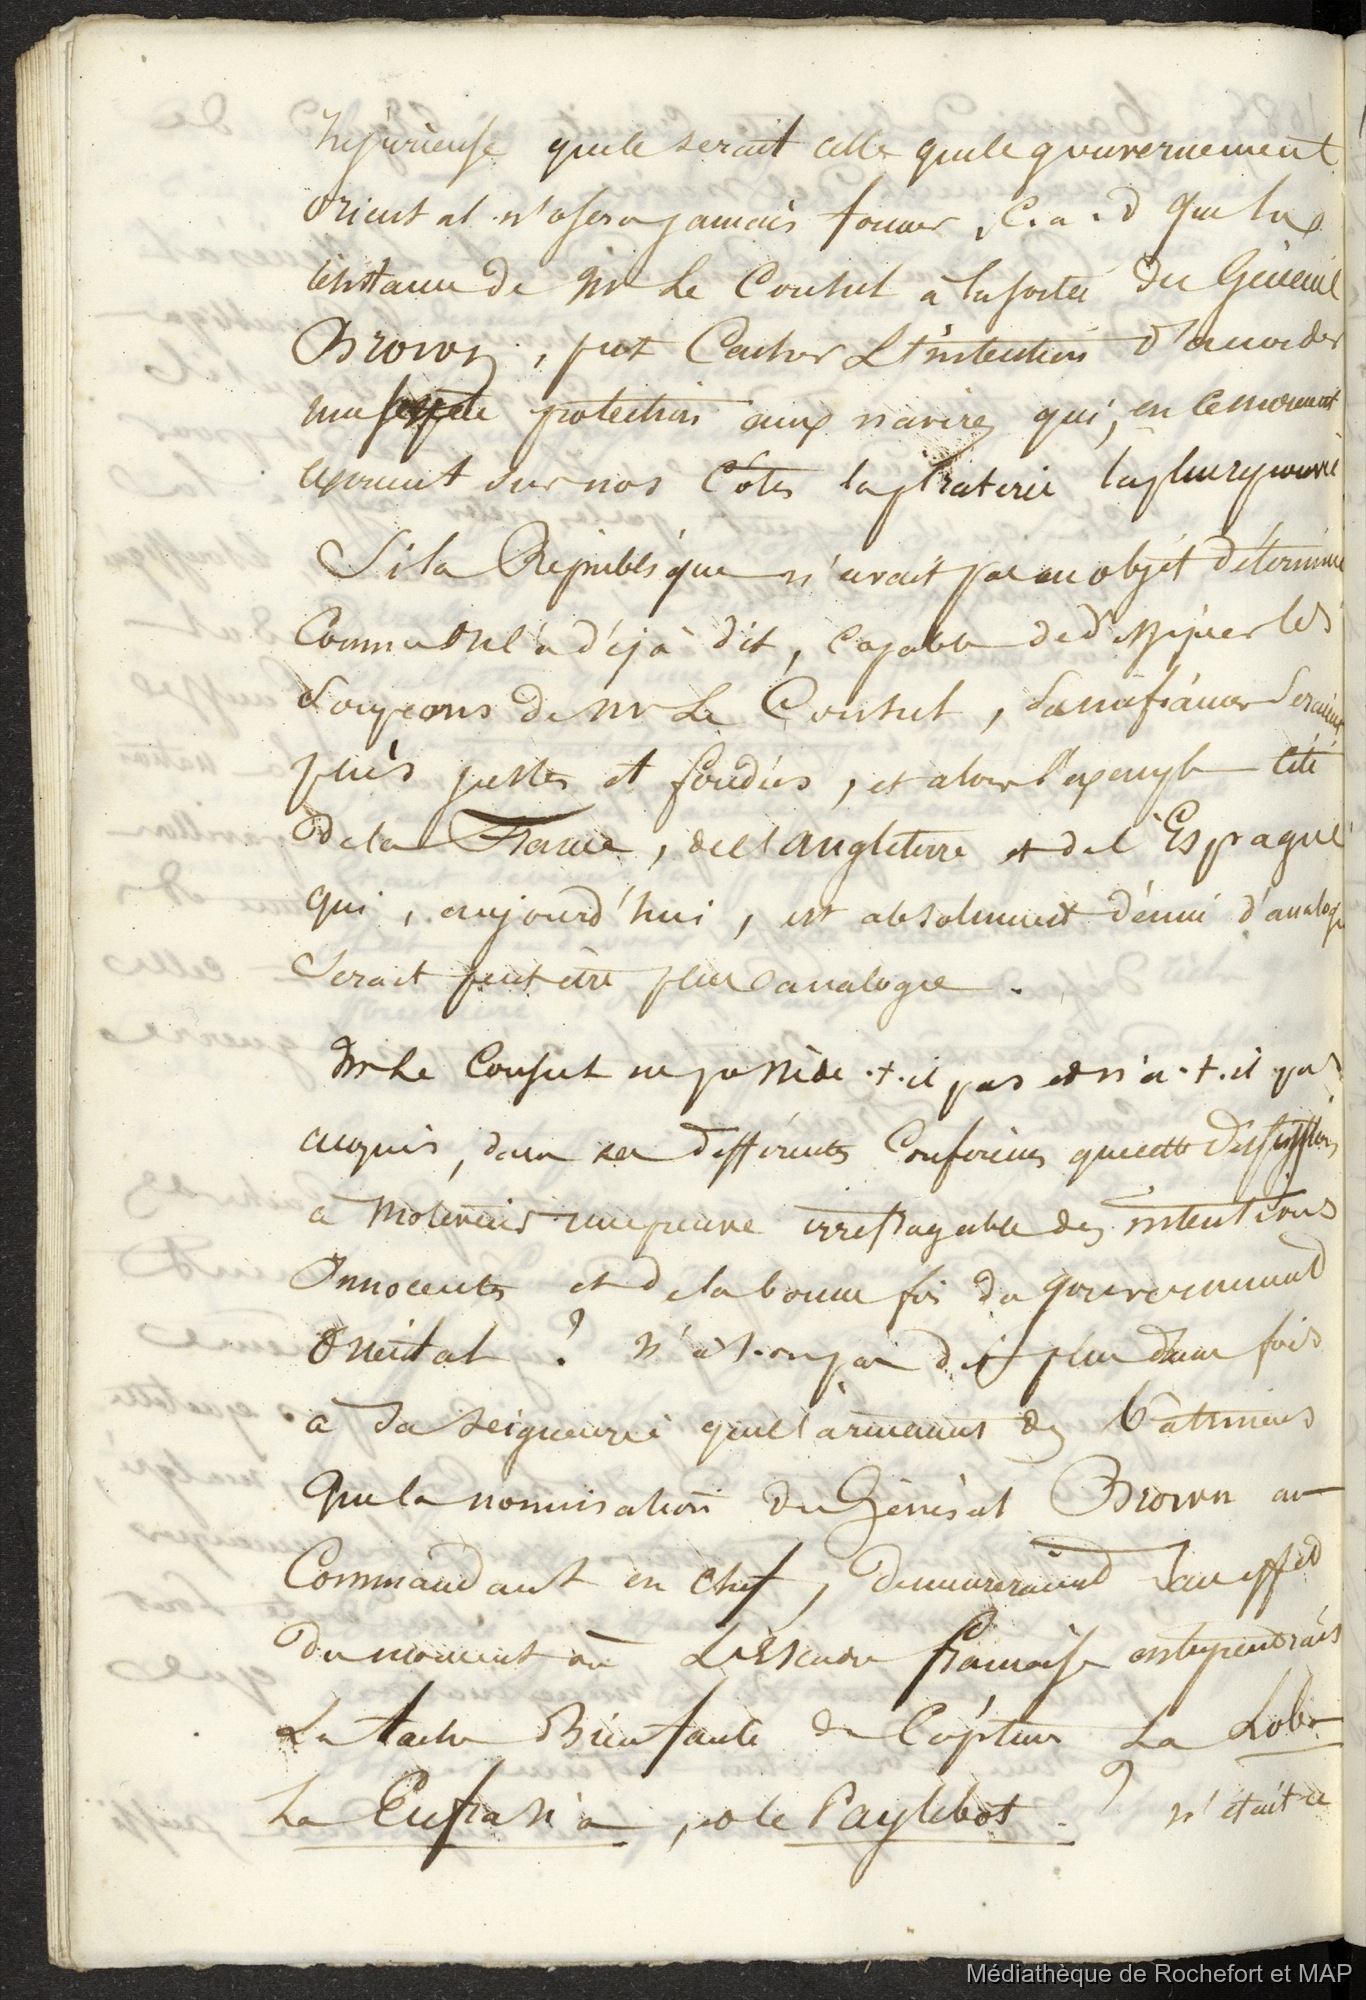 Injurieuse que le serait celle que le gouvernement
oriental n'osera jamais former, c.a.d que la
de Mr Le Consul à la sortie du Général
Brown, put Cacher L'intention d'accorder
protection aux navires qui, en ce moment
exercent sur nos Côtes la piraterie la plus
Si la République n'avait pas un objet déterminé
Comme on l'a déjà dit, capable de dissiper les
soupçons de Mr Le Consul, sa méfiance serait
plus justes et fondés, et alors l'exemple cité
De la France, de l'Angleterre et de l'Espagne
qui, aujourd'hui, est absolument dénué d'analogie
Serait peut être plus analogue.
Mr Le Consul ne possède.t.il pas et n'a.t.il pas
acquis, dans ses différentes Conférences que cette
à Motevideo une preuve irréfragable des intentions
Innocentes et de la bonne foi du gouvernement
Oriental ? N'a t.on pas dit plus d'une fois
à Sa Seigneurie que l'armement des Bâtimens
Que la nomination du Général Brown au
Commandant en chef, demeureraient sans effet
Du moment où L'Escadre française entreprendrais
La tache Bienfaisante de Capturer La Loba
La Eufrasia, et le Paylebot ? n'était ce
Médiathèque de Rochefort et MAP